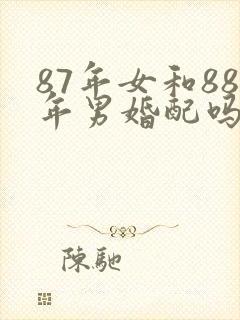 87年女和88
年男婚配吗
陳馳